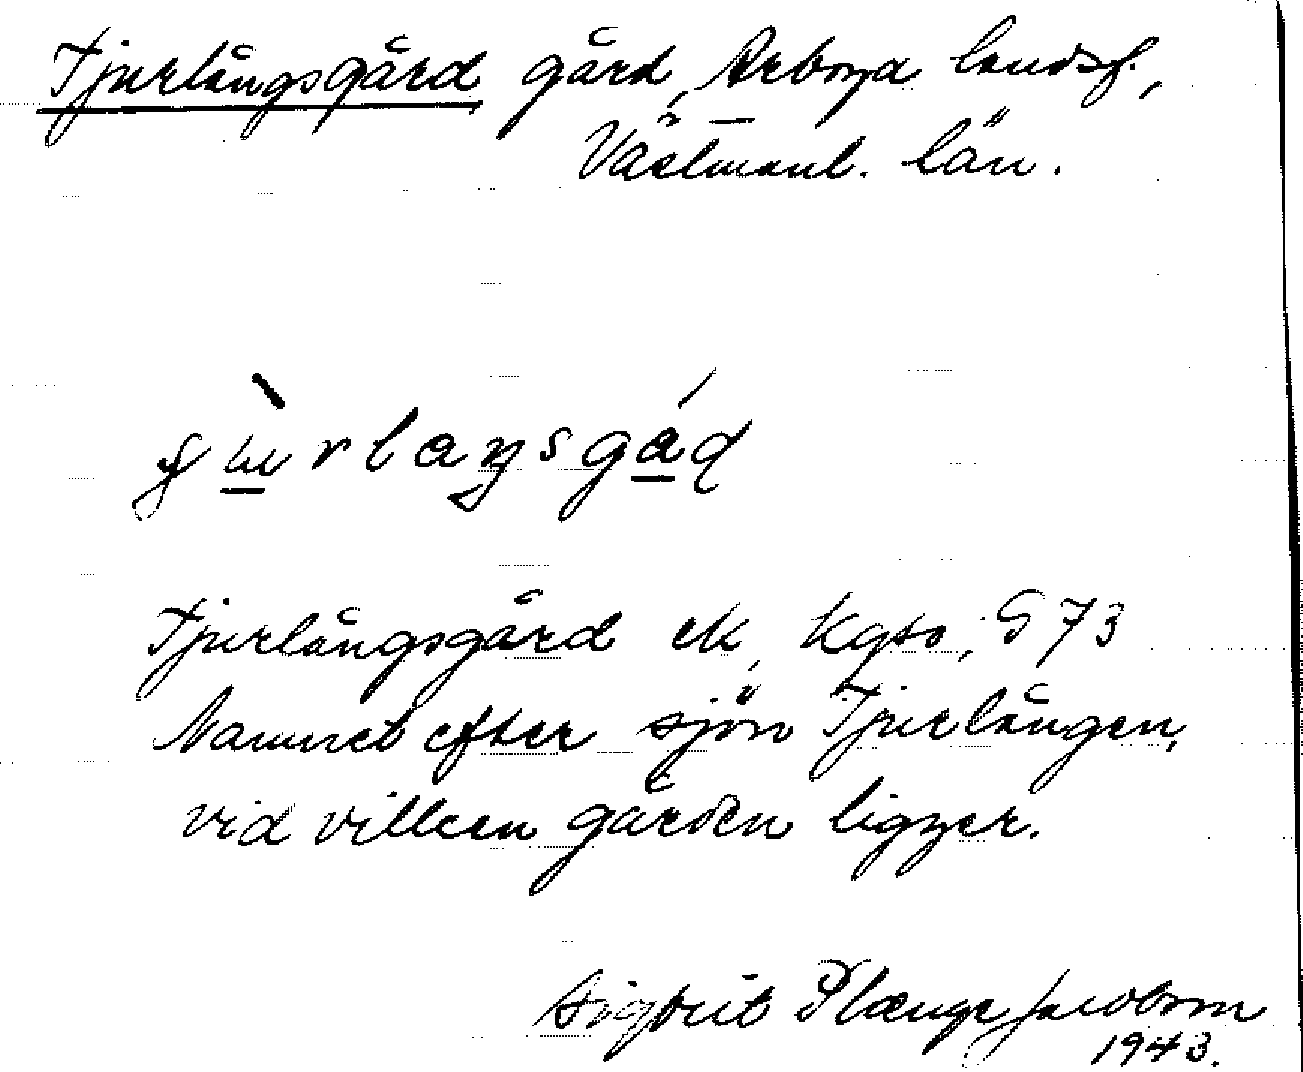 Tjurlångsgård gård, Arboga landsf.,
Västmanl. län.
Tjurlångsgård ek, Kgso, G 73
Namnet efter sjön Tjurlången,
vid vilken gården ligger.
Sigbrit Plænge Jacobson
1943.